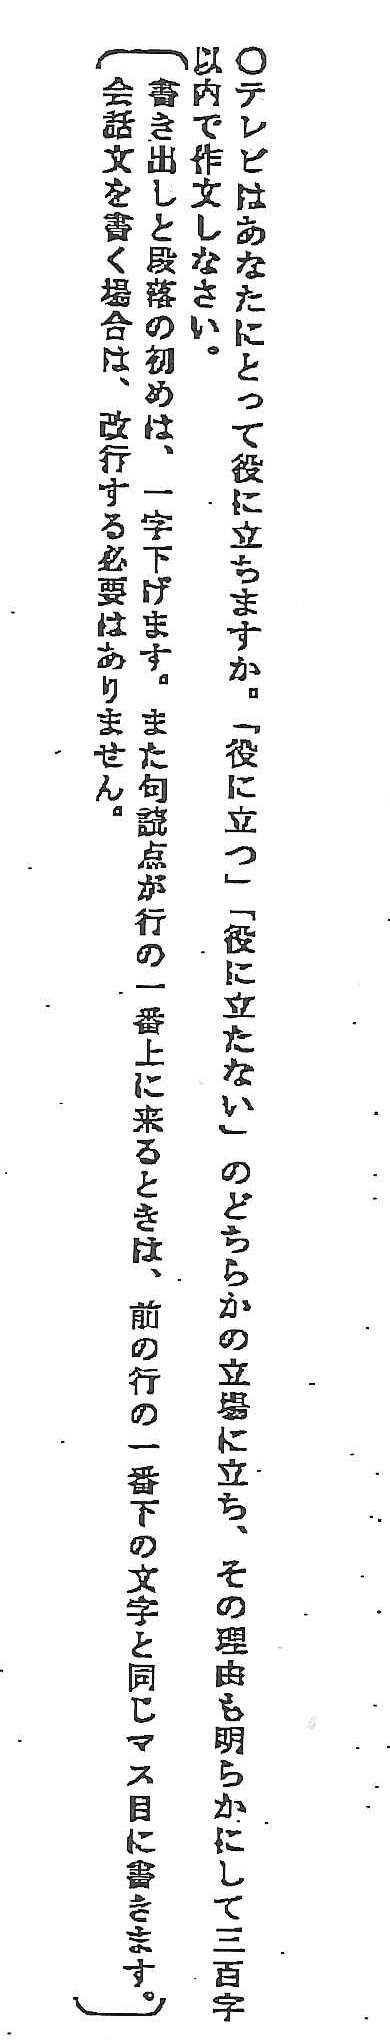 〇テレビはあなたにとって役に立ちますか。「役に立つ」「役に立たない」のどちらかの立場に立ち、その理由も明らかにして三百字
以内で作文しなさい。
（書き出しと段落の初めは、一字下げます。また句読点が行の一番上に来るときは、前の行の一番下の文字と同じマス目に書きます。
会話文を書く場合は、改行する必要はありません。）